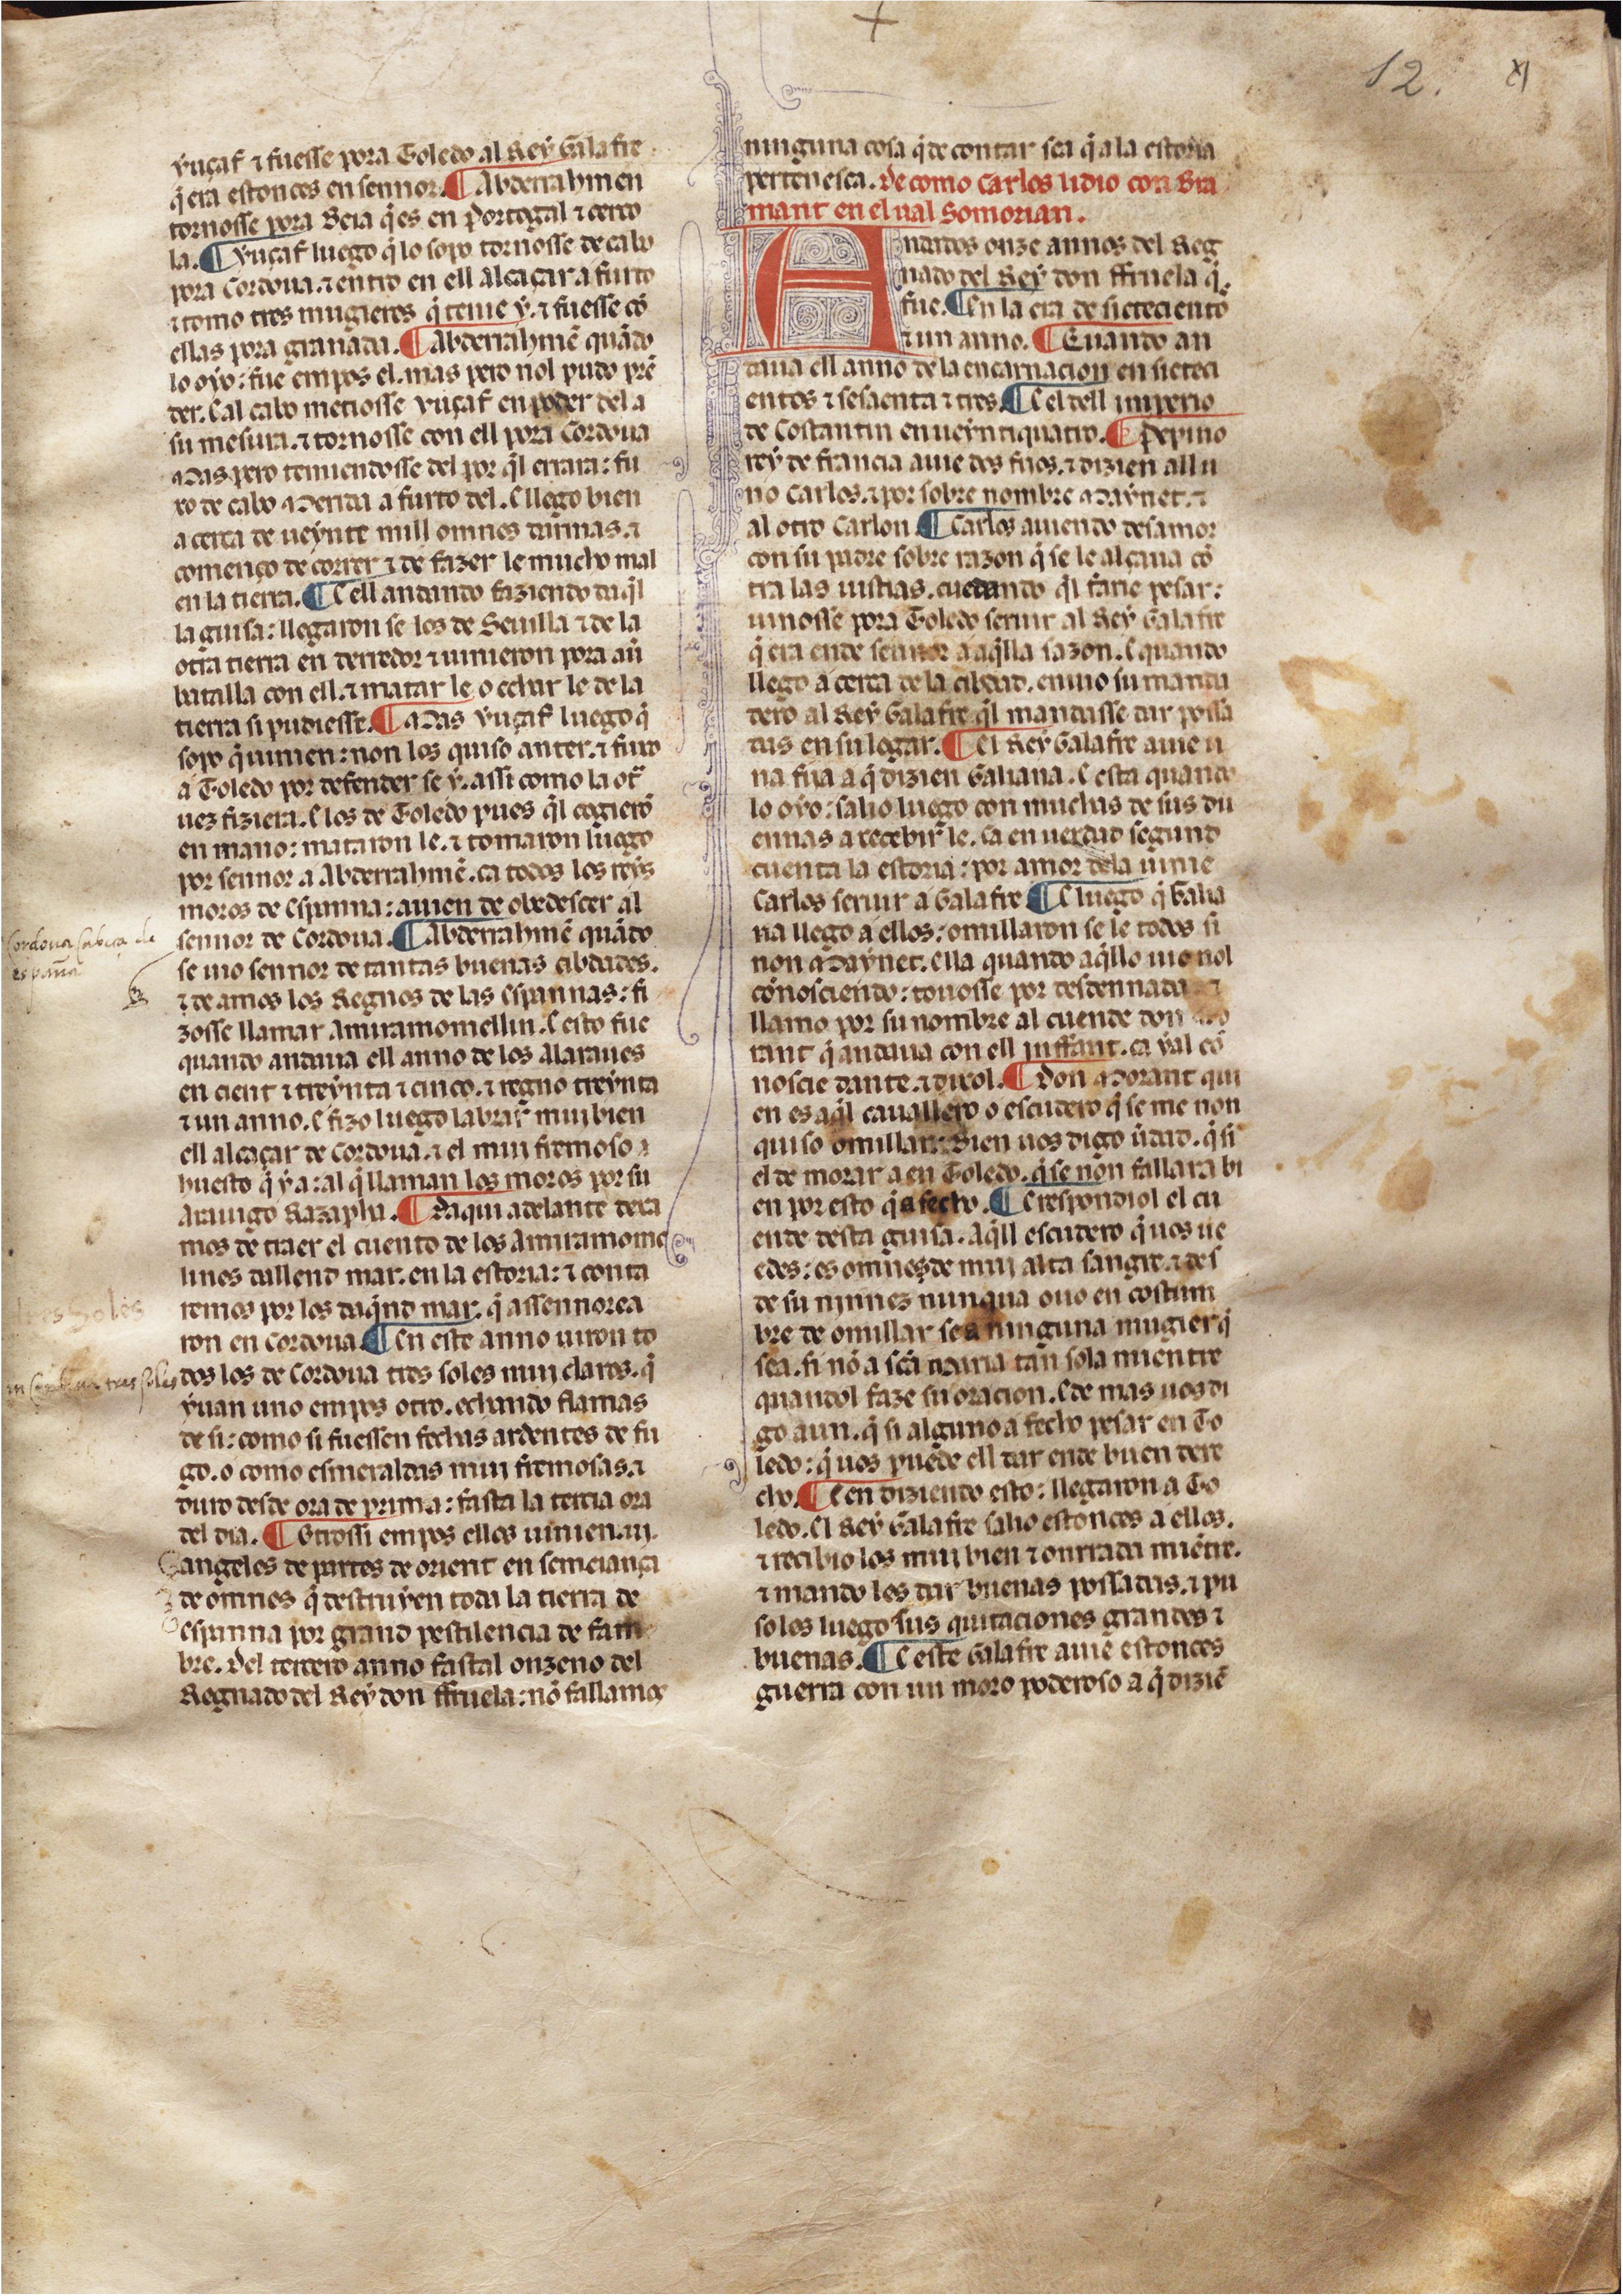 12. XI
yuçaf ⁊ fuesse pora Toledo al Rey Galafre
q̃ era estonces en sennor. ¶ Abderrahmen
tornosse pora Beia q̃ es en Portogal ⁊ cerco
la. ¶ Yuçaf luego q̃ lo sopo tornosse de cabo
pora Cordoua. ⁊ entro en ell alcaçar a furto
⁊ tomo tres mugieres q̃ tenie y. ⁊ fuesse cõ
ellas pora granada. ¶ Abderrahmẽ quãdo
lo oyo: fue empos el. mas pero nol pudo prẽ
der. E al cabo metiosse yuçaf en poder del a
su mesura. ⁊ tornosse con ell pora Cordoua
Mas pero temiendosse del por q̃l errara: fu
xo de cabo a Merida a furto del. E llego bien
a cerca de ueynte mill omnes darmas. ⁊
començo de correr ⁊ de fazer le mucho mal
en la tierra. ¶ E ell andando faziendo daq̃l
la guisa: llegaron se los de Seuilla ⁊ de la
otra tierra en derredor ⁊ uinieron pora auer
batalla con ell. ⁊ matar le o echar le de la
tierra si pudiesse. ¶ Mas yuçaf luego q̃
sopo q̃ uinien: non los quiso atender. ⁊ fuxo
a Toledo por defender se y. assi como la ot̃
uez fiziera. E los de Toledo pues q̃l cogierõ
en mano: mataron le. ⁊ tomaron luego
por sennor a Abderrahmẽ. ca todos los reys
moros de Espanna: auien de obedescer al
sennor de Cordoua. ¶ Abderrahmẽ quãdo
se uio sennor de tantas buenas cibdades.
⁊ de amos los Regnos de las Espannas: fi
zosse llamar Amiramomellin. E esto fue
quando andaua ell anno de los Alaraues
en cient ⁊ treynta ⁊ cinco. ⁊ regno treynta
⁊ un anno. E fizo luego labrar mui bien
ell alcaçar de Cordoua. ⁊ el mui fremoso
huesto q̃ y a: al q̃ llaman los moros por su
Arauigo Razapha. ¶ Daqui adelante dexa
mos de traer el cuento de los Amiramome
lines dallend mar. en la estoria: ⁊ conta
remos por los daq̃nd mar. q̃ assennorea
ron en Cordoua. ¶ En este anno uiron to
dos los de Cordoua tres soles mui claros. q̃
yuan uno empos otro. echando flamas
de si: como si fuessen fachas ardientes de fu
go. o como esmeraldas mui fremosas. ⁊
duro desde ora de prima: fasta la tercia ora
del dia. ¶ Otrossi empos ellos uinien .iii.
angeles de partes de orient en semeiança
de omnes q̃ destruyen toda la tierra de
espanna por grand pestilencia de fam
bre. Del tercero anno fastal onzeno del
Regnado del Rey don ffruela: nõ fallamos
Cordoua cabeça de
españa
tres Soles
en Cordoua tres soles
ninguna cosa q̃ de contar sea q̃ a la estoria
pertenesca. De como Carlos lidio con Bra
mant en el ual Somorian.
Andados onze annos del Reg
nado del Rey don ffruela q̃
fue. ¶ En la era de sietecientos
⁊ un anno. ¶ E quando an
daua ell anno de la encarnacion en sieteci
entos ⁊ sesaenta ⁊ tres. ¶ E el dell imperio
de Costantin en ueyntiquatro. ¶ Pepino
rey de francia auie dos fijos. ⁊ dizien all u
no Carlos. ⁊ por sobre nombre Maynet. ⁊
al otro Carlon. ¶ Carlos auiendo desamor
con su padre sobre razon q̃ se le alçaua cõ
tra las iustias. cuedando q̃l farie pesar:
uinosse pora Toledo seruir al Rey Galafre
q̃ era ende sennor a aq̃lla sazon. E quando
llego a cerca de la cibdad. enuio su manda
dero al Rey Galafre q̃l mandasse dar possa
das en su logar. ¶ El Rey Galafre auie u
na fija a q̃ dizien Galiana. E esta quando
lo oyo: salio luego con muchas de sus du
ennas a recebir le. ca en uerdad segund
cuenta la estoria: por amor dela uinie
Carlos seruir a Galafre ¶ E luego q̃ Galia
na llego a ellos: omillaron se le todos si
non Maynet. Ella quando aq̃llo uio nol
cõnosciendo: touosse por desdennada ⁊
llamo por su nombre al cuende don Mo
rant q̃ andaua con ell inffant. ca yal cõ
noscie dante. ⁊ dixol. ¶ Don Morant qui
en es aq̃l cauallero o escudero q̃ se me non
quiso omillar: Bien uos digo ũdad. q̃ si
el de morar a en Toledo. q̃ se non fallara bi
en por esto q̃ a fecho. ¶ E respondiol el cu
ende desta guisa. Aq̃ll escudero q̃ uos ue
edes: es omne de mui alta sangre. ⁊ des
de su ninnez nunqua ouo en costum
bre de omillar se a ninguna mugier q̃
sea. si nõ a scã maria tan sola mientre
quandol faze su oracion. E de mas uos di
go aun. q̃ si alguno a fecho pesar en To
ledo: q̃ uos puede ell dar ende buen dere
cho. ¶ E en diziendo esto: llegaron a To
ledo. El Rey Galafre salio estonces a ellos.
⁊ recibio los mui bien ⁊ onrrada miẽtre.
⁊ mando les dar buenas possadas. ⁊ pu
so los luego sus quitaciones grandes ⁊
buenas. ¶ E este Galafre auie estonces
guerra con un moro poderoso a q̃ diziẽ